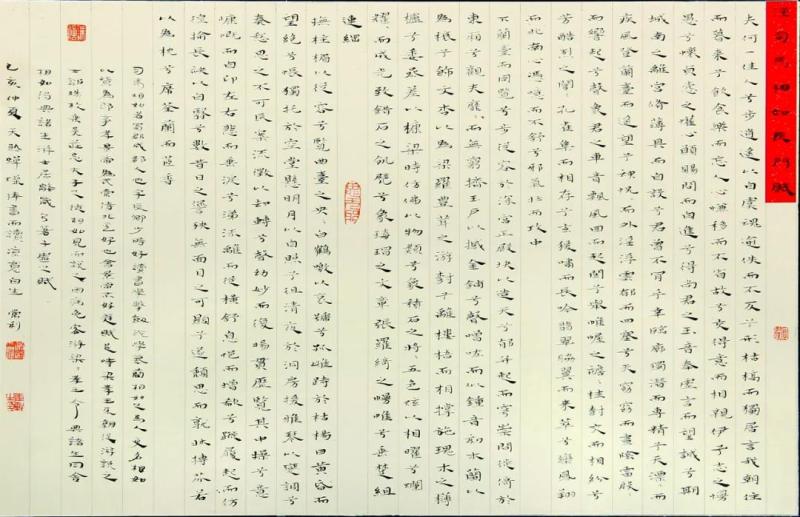 漢司馬相如長門賦
夫何一佳人兮步逍遙以自虞魂逾佚而不反兮形枯槁而獨居言我朝往
而暮來兮飲食樂而忘人心慊移而不省故兮交得意而相親伊予志之慢
愚兮懷貞愨之懽心願賜問而自進兮得尚君之玉音奉虛言而望誠兮期
城南之離宮脩薄具而自設兮君曾不肯乎幸臨廓獨潛而專精兮天漂漂而
疾風登蘭臺而遙望兮神怳怳而外淫浮雲鬱而四塞兮天窈窈而晝陰雷殷殷
而響起兮聲象君之車音飄風回而起閨兮舉帷幄之襜襜桂樹交而相紛兮
芳酷烈之誾誾孔雀集而相存兮玄猨嘯而長吟翡翠脇翼而來萃兮鸞鳳翔
而北南心憑噫而不舒兮邪氣壯而攻中
下蘭臺而周覽兮步從容於深宮正殿塊以造天兮鬱并起而穹崇間徙倚於
東廂兮觀夫靡靡而無窮擠玉戶以撼金鋪兮聲噌吰而似鐘音刻木蘭以
為榱兮飾文杏以為梁羅豐茸之游樹兮離樓梧而相撐施瑰木之欂
櫨兮委參差以槺梁時仿佛以物類兮象積石之將將五色炫以相曜兮爛
耀耀而成光致錯石之瓴甓兮象瑇瑁之文章張羅綺之幔帷兮垂楚組
連綱
撫柱楣以從容兮覽曲臺之央央白鶴噭以哀號兮孤雌跱於枯楊日黃昏而
望絕兮悵獨托於空堂懸明月以自照兮徂清夜於洞房援雅琴以變調兮
奏愁思之不可長案流徵以卻轉兮聲幼妙而復揚貫歷覽其中操兮意
慷慨而自卬左右悲而垂淚兮涕流離而從橫舒息悒而增欷兮蹝履起而彷
徨揄長袂以自翳兮數昔日之愆殃無面目之可顯兮遂頹思而就牀摶芬若
以為枕兮席荃蘭而茝香
司馬相如蜀郡成都人也字長卿少時好讀書學擊劍 慕藺相如之為人更名相如
以貲為郎事孝景帝為武騎常侍非其好也會景帝不好辭賦是時梁孝王來朝從游說之
士 枚 莊忌夫子之徒相如見而說之因病免客游梁 與諸生同舍
相如得與諸生游士居數歲乃著子虛之賦
己亥仲夏天 書